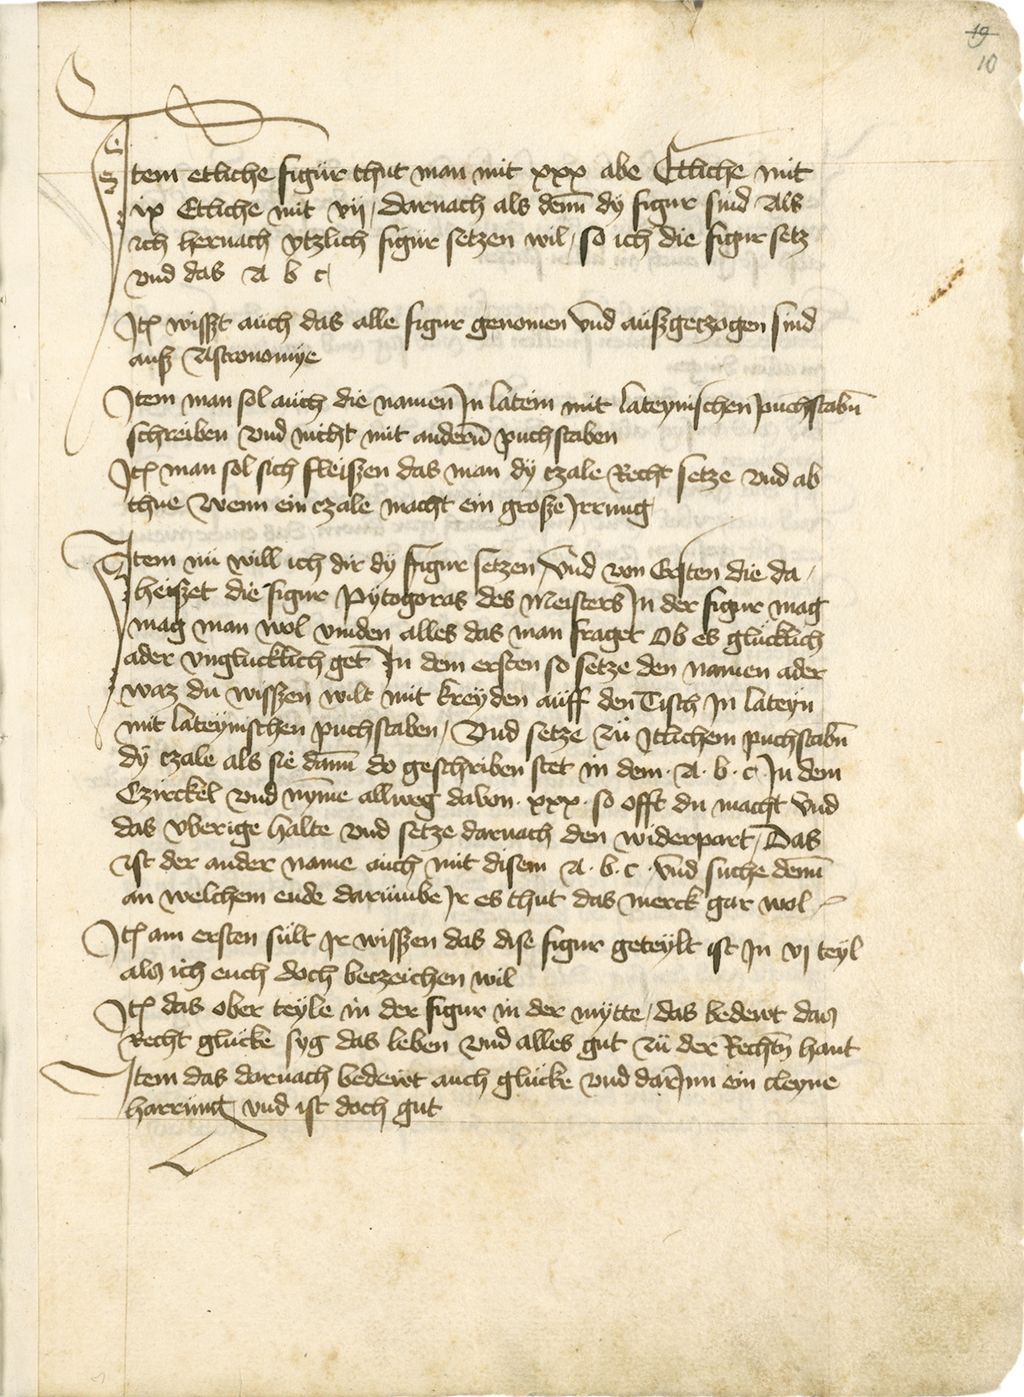 19
10
Item etliche figür thut man mit xxx abe Etliche mit
ix Etliche mit vij / darnach als denn dy figur sind Als
ich hernach ytzlich figür setzen wil / so ich die figur setz
vnd das A b c
Itm wisszt auch das alle figur genomen Vnd auszgetzogen sind
ausz Astronomye
Item man sol auch die namen In latein mit lateynischen puchstabn
schreiben vnd nicht mit andern puchstaben
Itm man sol sich fleiszen das man dy czale Recht setze vnd ab
thue Wenn ein czale macht ein grosze Irrung
Item nü will ich dir dy figur setzen Vnd von Ersten die da /
heiszet die figur Pytogoras des Meisters In der figur mag
mag man wol vinden alles das man fraget Ob es glücklich
ader vnglucklich get In dem ersten so setze den namen ader
waz du wisszen wilt mit kreyden aüff den Tisch In lateyn
mit lateynischen puchstaben / Vnd setze zü Itlichem puchstabn
dy czale als sie dann do geschriben stet in dem · A · b · c In dem
Czirckel vnd nyme allweg davon · xxx · so offt du macht Vnd
das vberige halte vnd setze darnach den widerpart / Das
ist der ander name auch mit disem A · b · c · Vnd suche denn
an welchem ende darümbe Ir es thut das merck gar wol
Itm am ersten sült Ir wisszen das dise figur geteylt ist In vj teyl
als ich euch doch betzeichen wil
Itm das ober teyle in der figur in der mytte / das bedewt das
Recht glücke syg das leben vnd alles gut zü der Rechtn hant
Item das darnach bedewt auch glücke vnd darInn ein cleyne
harrung vnd ist doch gut